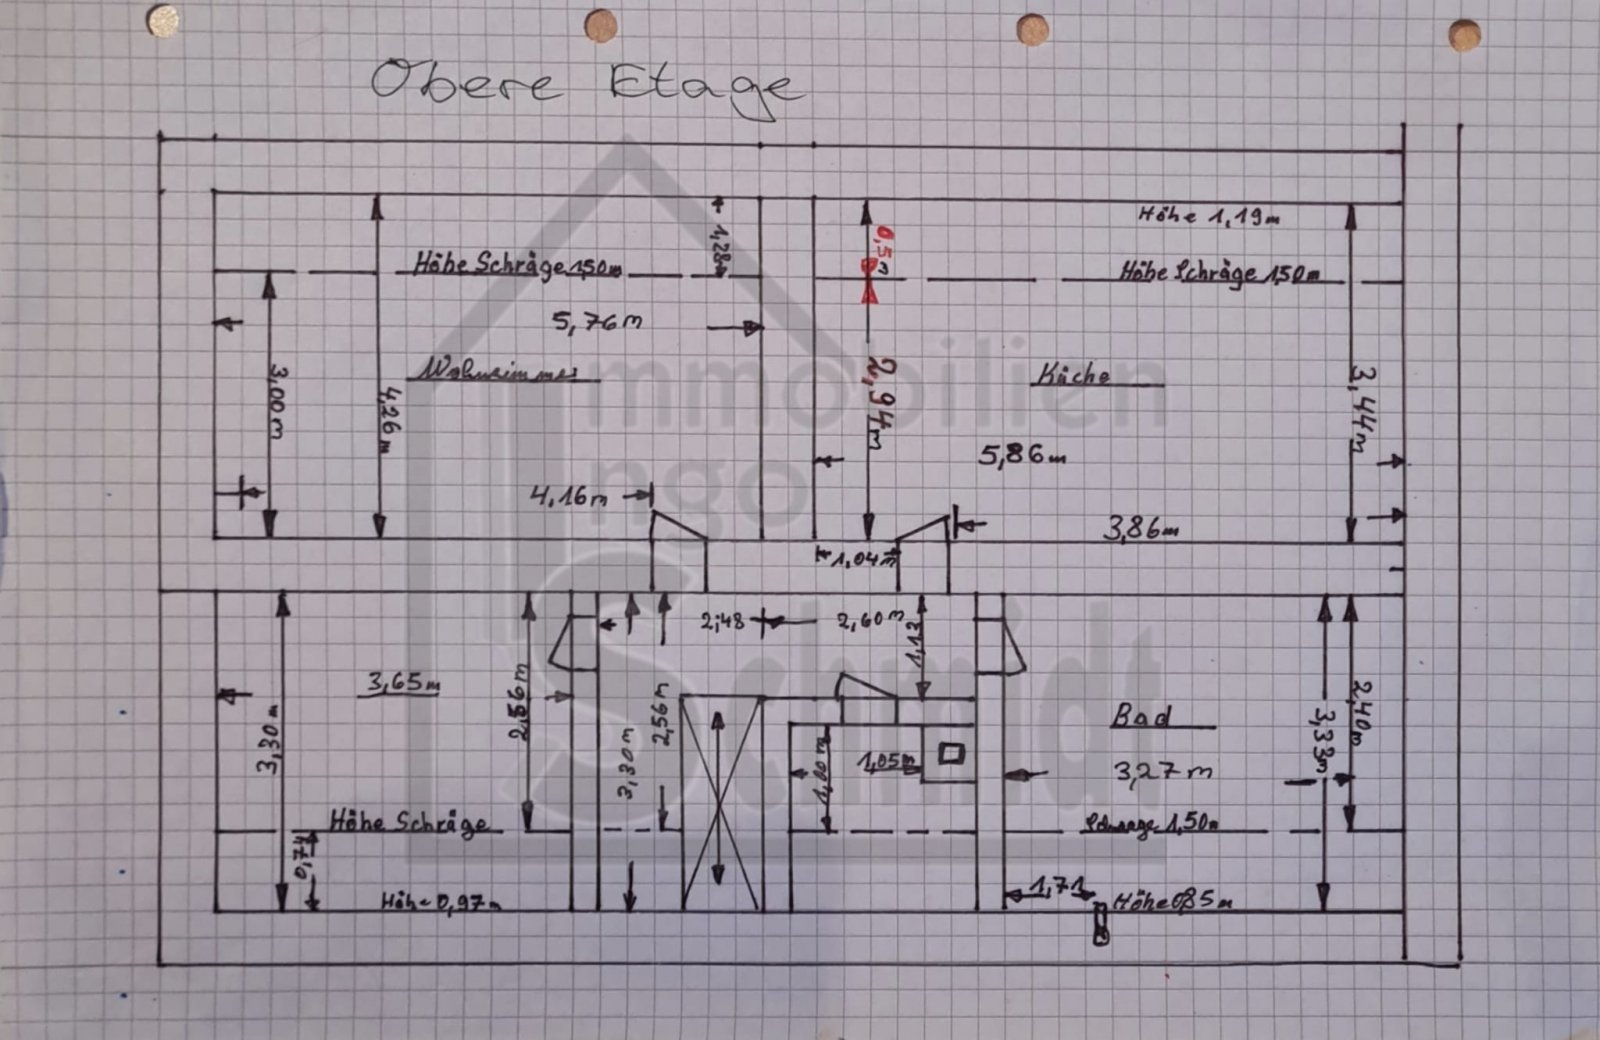 Obere Etage
Höhe 1,19m
1,28m
0,5
Höhe Schräge 1,50m
Höhe Schräge 1,50m
5,76m
Wohnzimmer
Küche
3,00m
4,26m
2,94m
3,44m
5,86m
4,16m
3,86m
1,04m
2,48
2,60m
1,13
3,65m
2,56m
2,56m
3,30m
3,30m
Bad
2,40m
3,33m
1,05m
1,00m
3,27m
Höhe Schräge
Schräge 1,50m
0,74
1,71
Höhe 0,97m
Höhe 0,85m
Immobilien
Ingo
Schmidt